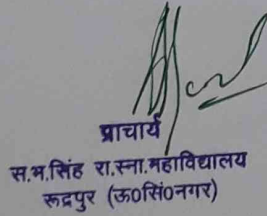 प्राचार्य
स.भ.सिंह रा.स्ना.महाविद्यालय
रूद्रपुर (ऊ0सिं0नगर)